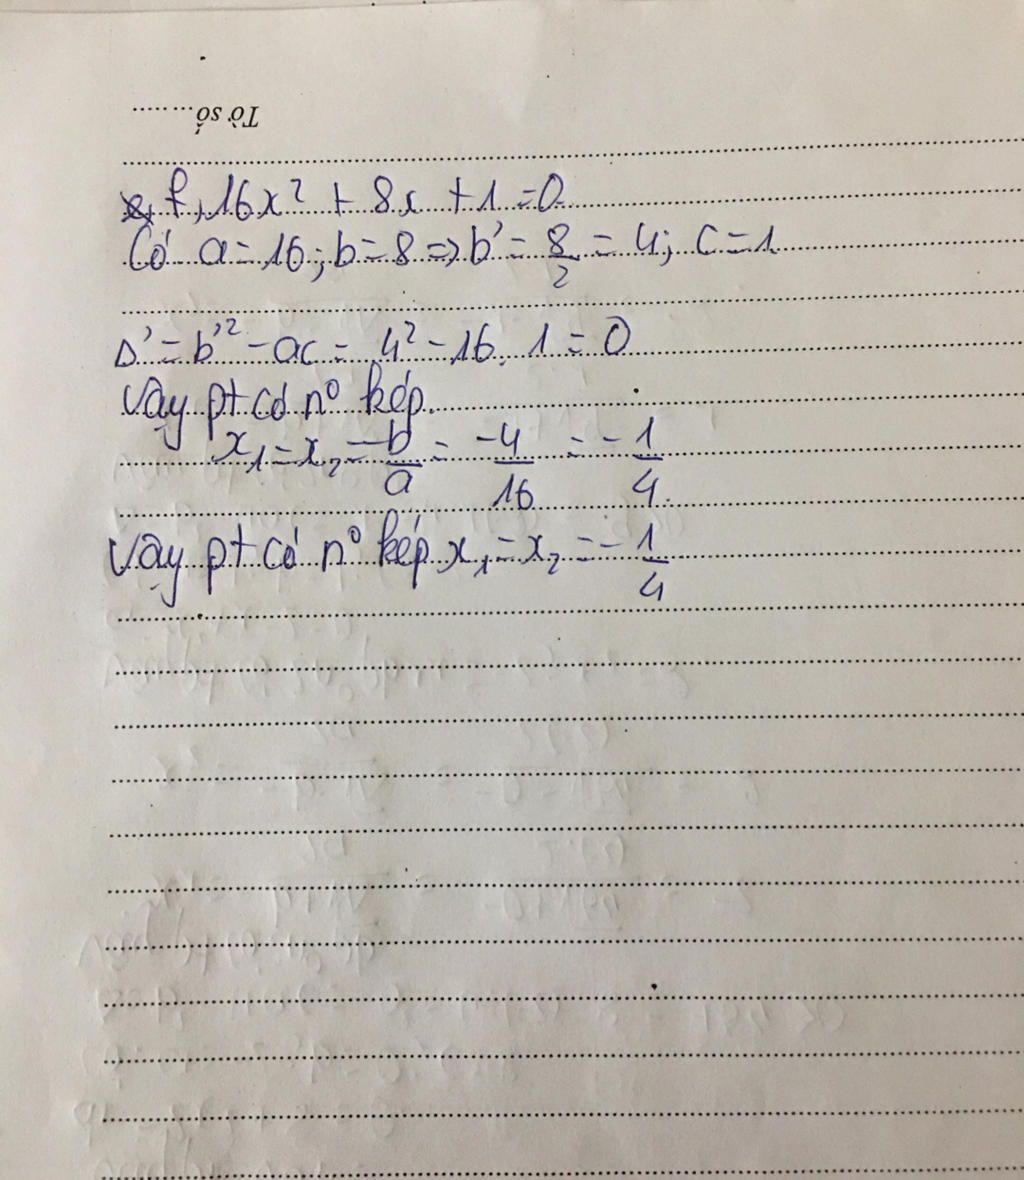 Tờ số ........
f, 16x² + 8x + 1 = 0
Có a = 16; b = 8 => b' = 8/2 = 4; c = 1
Δ' = b'² - ac = 4² - 16.1 = 0
Vậy pt có n⁰ kép.
x₁ = x₂ = -b/a = -4/16 = -1/4
Vậy pt có n⁰ kép x₁ = x₂ = -1/4